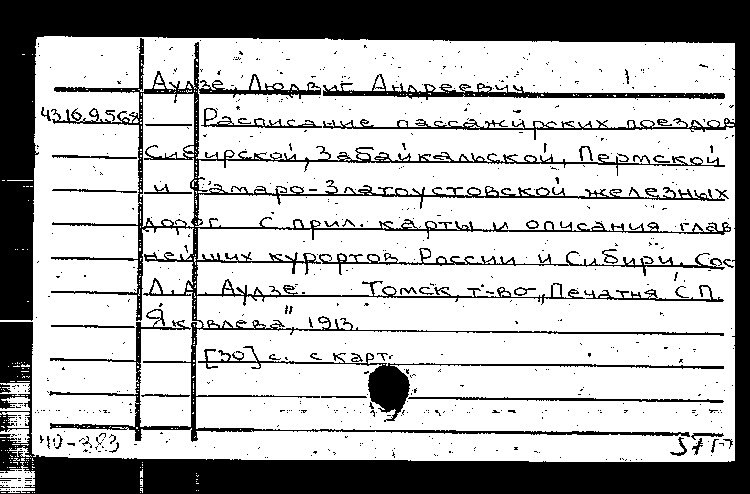 Аудзе, Людвиг Андреевич
43.16.9.568 Расписание пассажирских поездов
Сибирской, Забайкальской, Пермской
и Самаро-Златоустовской железных
дорог. С прил. карты и описания глав
нейших курортов России и Сибири. Сос
Л.А. Аудзе. Томск, т-во "Печатня С.П.
Яковлева", 1913.
[30] с. с карт.
40-383